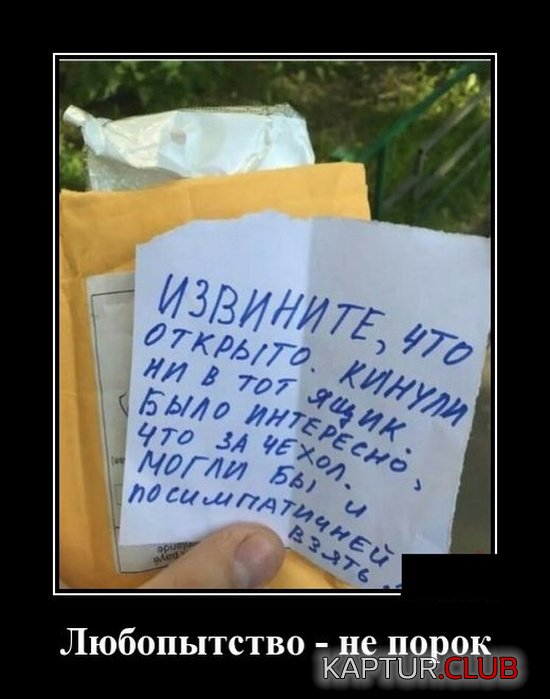 ИЗВИНИТЕ, ЧТО
ОТКРЫТО. КИНУЛИ
НИ В ТОТ ЯЩИК.
БЫЛО ИНТЕРЕСНО,
ЧТО ЗА ЧЕХОЛ.
МОГЛИ БЫ И
ПОСИМПАТИЧНЕЙ
ВЗЯТЬ.
Любопытство - не порок
KAPTUR.CLUB